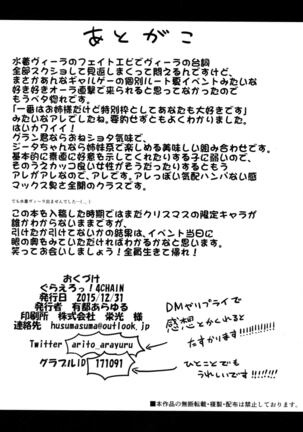 あとがこ
水着ヴィーラのフェイトエピでヴィーラの台詞
全部スクショして見返しまくって悶えるんですけど、
まさかあんなギャルゲーの個別ルート夏イベントみたいな
好き好きオーラ直撃で来られると思ってなかったので
もうベタ惚れです。
「一番はお姉様だけど特別枠としてあなたも大好きです」
みたいなアレでしたね。要約せずともよくわかりました。
はいカワイイ！
グラン君ならおねショタ気味で、
ジータちゃんなら姉妹奈で楽しめる美味しい組み合わせです。
基本的に素直に好意も示してくれたりする子に弱いので、
そのうえカッコ良い女性がそうだったりするともう
アレがアレなので、アレです。アレっぽい気配ハンパない感
マックス勢さ全開のクラスです。
でも水着ヴィーラ出ませんでした…(._.)
この本も入稿した時期ではまだクリスマスの限定キャラが
誰かわからないままですが、
引けたか引けてないかの結果は、イベント当日に
眼の奥もみていただければわかるかなと思います。
笑ってお会いしましょう！全員生きて帰れ！
おくづけ
ぐらえろっ！4CHAIN
発行日 2015/12/31
発行者 有都あらゆる
印刷所 株式会社 栄光 様
連絡先 husumasuma@outlook.jp
Twitter arito_arayuru
グラブルID 171091
DMやリプライで
感想とかくれると
たすかります!!!!!!!
ひとことでも
うれしいです!!!!!!!
■本作品の無断転載・複製・配布は禁止です。